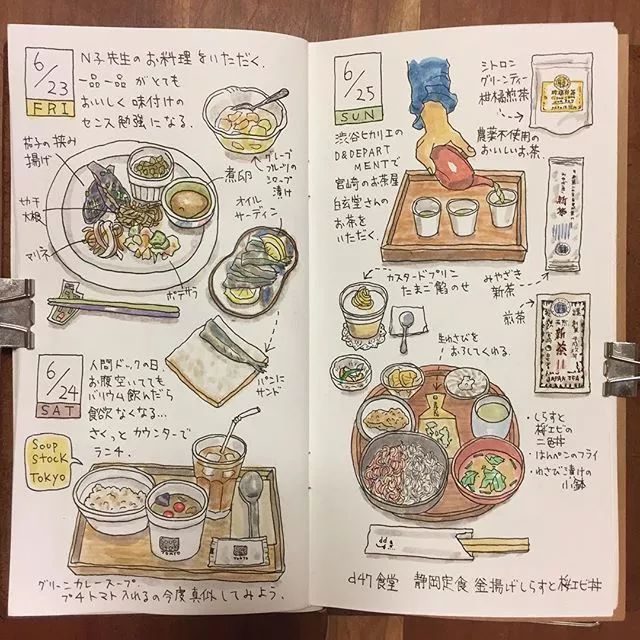 6/23
FRI
N子先生のお料理をいただく。
一品一品がとても
おいしく味付けの
センス勉強になる。
茄子の挟み
揚げ
切干
大根
マリネ
ポテサラ
煮卵
グレープ
フルーツの
シロップ
漬け
オイル
サーディン
パンに
サンド
6/24
SAT
人間ドックの日。
お腹空いてても
バリウム飲んだら
食欲なくなる…
さくっとカウンターで
ランチ。
SOUP
STOCK
TOKYO
グリーンカレースープ。
プチトマト入れるの今度真似してみよう。
6/25
SUN
渋谷ヒカリエの
D&DEPART
MENTで
宮崎のお茶屋
白玄堂さんの
お茶を
いただく。
シトロン
グリーンティー
柑橘煎茶
農薬不使用の
おいしいお茶。
みやざき
新茶
煎茶
新茶
JAPAN TEA
カスタードプリン
たまご餡のせ
生わさびを
おろしてくれる。
・しらすと
桜エビの
二色丼
・はんぺんのフライ
・わさび漬けの
小鉢
d47食堂 静岡定食 釜揚げしらすと桜エビ丼